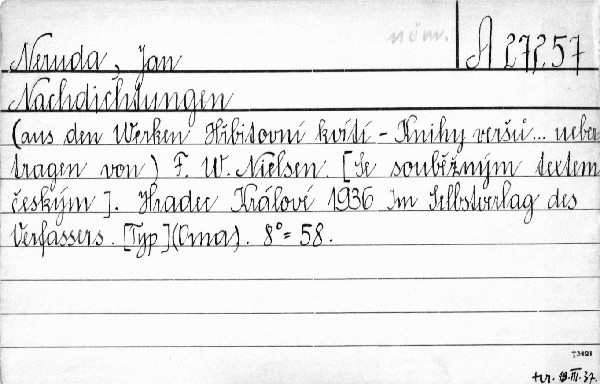 něm.
Neruda, Jan
A 27257
Nachdichtungen
(aus den Werken Hřbitovní kvítí - Knihy veršů ... ueber-
tragen von) F. W. Nielsen. [Se souběžným textem
českým]. Hradec Králové 1936 Im Selbstverlag des
Verfassers. [Typ](Oma). 8°= 58.
T3421